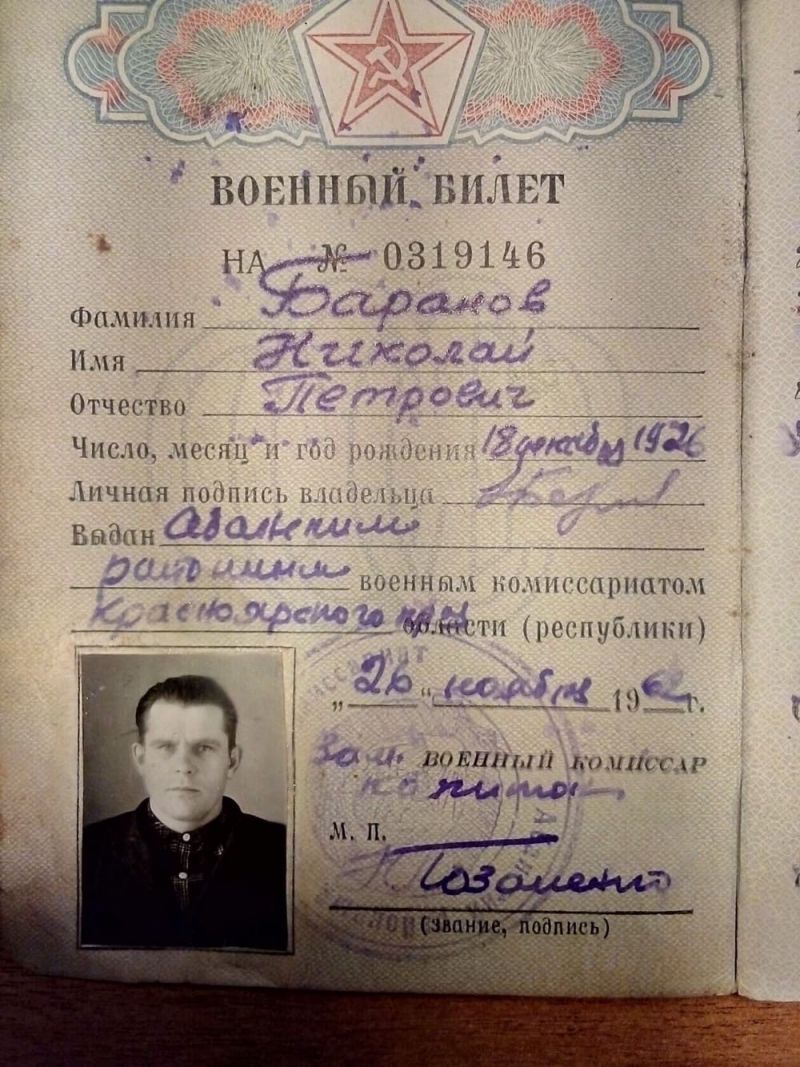 ВОЕННЫЙ БИЛЕТ
НА № 0319146
Фамилия Баранов
Имя Николай
Отчество Петрович
Число, месяц и год рождения 18 декабря 1926
Личная подпись владельца
Выдан Абанским
районным военным комиссариатом
Красноярского края области (республики)
„26“ ноября 1962г.
Зам. ВОЕННЫЙ КОМИССАР
капитан
М. П.
(звание, подпись)